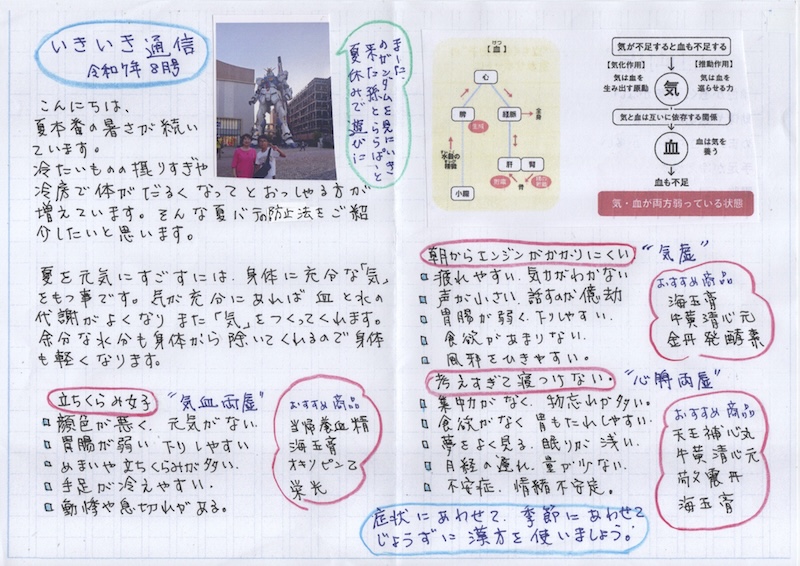 いきいき通信
令和7年 8月号
こんにちは、
夏本番の暑さが続い
ています。
冷たいものの摂りすぎや
冷房で体がだるくなってとおっしゃる方が
増えています。そんな夏バテの防止法をご紹
介したいと思います。
夏を元気にすごすには、身体に充分な「気」
をもつ事です。気が充分にあれば血と水の
代謝がよくなりまた「気」をつくってくれます。
余分な水分も身体から除いてくれるので身体
も軽くなります。
立ちくらみ女子
"気血両虚"
顔色が悪く、元気がない。
胃腸が弱い 下りしやすい
めまいや立ちくらみが多い。
手足が冷えやすい。
動悸や息切れがある。
おすすめ商品
当帰養血精
海玉膏
オキソピンZ
栄光
まーた、
のガンダムを見にいき
来た孫とららぽっと
夏休みで遊びに
【血】
心
脾
経脈
全身
生成
肝
腎
貯蔵
骨
小腸
気が不足すると血も不足する
【気化作用】
気は血を
生み出す原動
気
【推動作用】
気は血を
巡らせる力
気と血は互いに依存する関係
血
血は気を
養う
血も不足
気・血が両方弱っている状態
朝からエンジンがかかりにくい
"気虚"
疲れやすい、気力がわかない
声が小さい、話すのが億劫
胃腸が弱く、下りしやすい、
食欲があまりない。
風邪をひきやすい。
おすすめ商品
海玉膏
牛黄清心元
金丹発酵素
考えすぎて寝つけない。
"心脾両虚"
集中力がなく、物忘れが多い。
食欲がなく 胃もたれしやすい。
夢をよく見る、眠りが浅い。
月経の遅れ、量が少ない、
不安症、情緒不安定。
おすすめ商品
天王補心丸
牛黄清心元
海玉膏
症状にあわせて、季節にあわせて
じょうずに漢方を使いましょう!